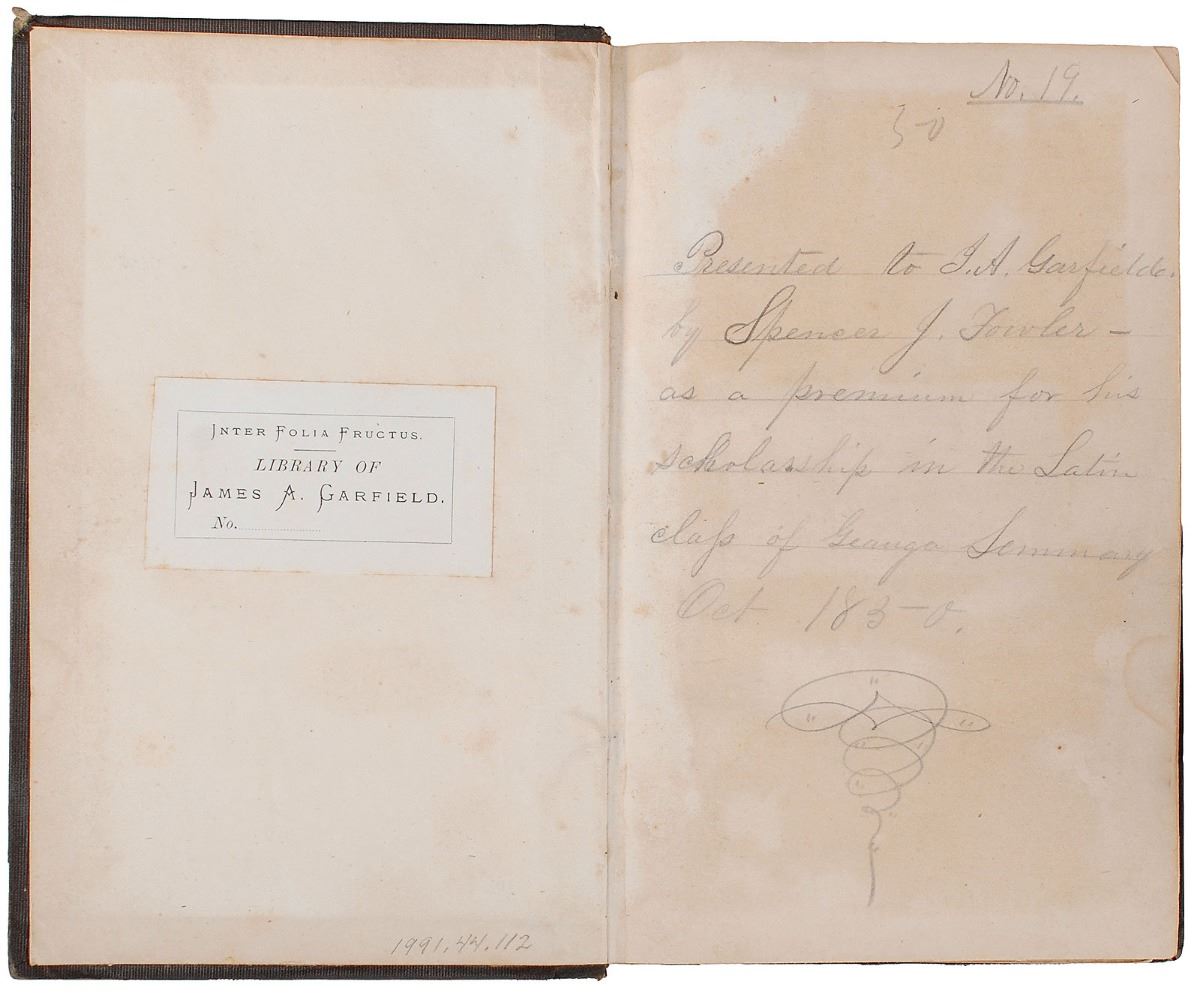 INTER FOLIA FRUCTUS.
LIBRARY OF
JAMES A. GARFIELD.
No.
1991.44.112
No. 19.
50
Presented to J. A. Garfield.
by Spencer J. Fowler –
as a premium for his
scholarship in the Latin
claſs of Geauga Seminary
Oct. 1850.